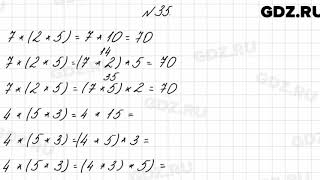 GDZ.RU
№ 35
7 * (2 * 5) = 7 * 10 = 70
14
7 * (2 * 5) = (7 * 2) * 5 = 70
35
7 * (2 * 5) = (7 * 5) * 2 = 70
4 * (5 * 3) = 4 * 15 =
4 * (5 * 3) = (4 * 5) * 3 =
4 * (5 * 3) = (4 * 3) * 5) =